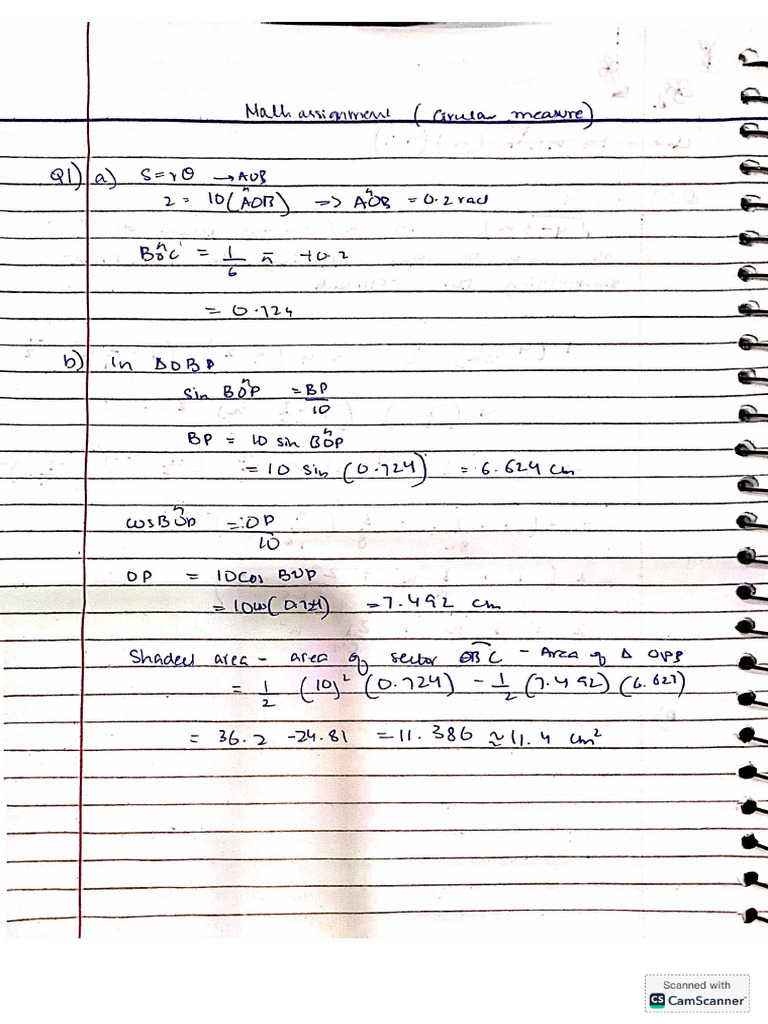 Math assignment ( Cirular measure)
Q1) a) S = rθ → AOB
2 = 10 (AÔB) => AÔB = 0.2 rad
BÔC = 1/6 π + 0.2
= 0.724
b) in Δ OBP
sin BÔP = BP/10
BP = 10 sin BÔP
= 10 sin (0.724) = 6.624 cm
cos BÔP = OP/10
OP = 10cos BOP
= 10cos(0.724) = 7.492 cm
Shaded area - area of sector OBC - Area of Δ OPB
= 1/2 (10)² (0.724) - 1/2 (7.492) (6.627)
= 36.2 - 24.81 = 11.386 ≈ 11.4 cm²
Scanned with
CS CamScanner